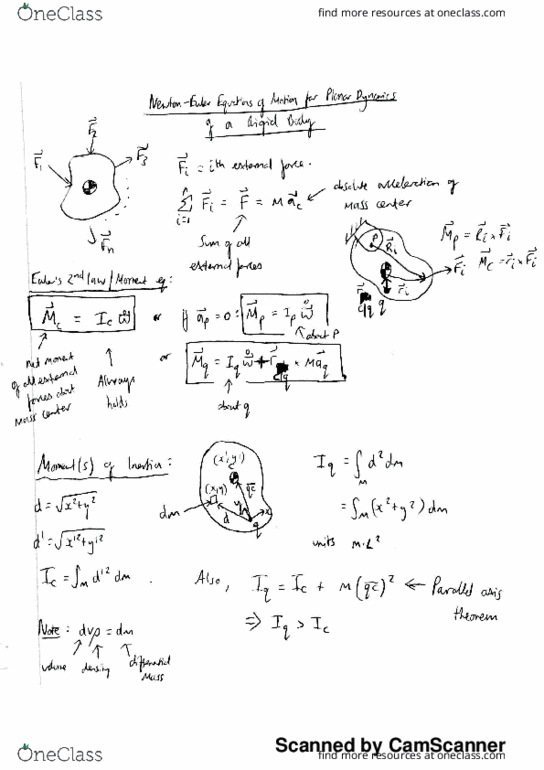 OneClass
find more resources at oneclass.com
Newton-Euler Equations of Motion for Planar Dynamics
of a Rigid Body
F⃗₁ F⃗₂ F⃗₃ F⃗ₙ
F⃗ᵢ = ith external force.
Σⁿᵢ₌₁ F⃗ᵢ = F⃗ = m a⃗c
absolute acceleration of
mass center
Sum of all
external forces
P R⃗ᵢ F⃗ᵢ r⃗ᵢ q
M⃗p = R⃗ᵢ × F⃗ᵢ
M⃗c = r⃗ᵢ × F⃗ᵢ
Euler's 2nd law/Moment eq:
M⃗c = Ic ω̊ or if a⃗p = 0 : M⃗p = Ip ω̊
about P
Net moment
of all external
forces about
mass center
Always
holds
or M⃗q = Iq ω̊ + r⃗cq × m a⃗q
about q
Moment(s) of Inertia:
(x',y')
c
(x,y)
dm d y x q qc
d = √x²+y²
d' = √x'²+y'²
Ic = ∫m d'² dm .
Iq = ∫m d² dm
= ∫m (x²+y²) dm
units M·L²
Also, Iq = Ic + M(qc)² ← Parallel axis
theorem
⇒ Iq > Ic
Note: dvρ = dm
volume density differential
mass
Scanned by CamScanner
OneClass
find more resources at oneclass.com